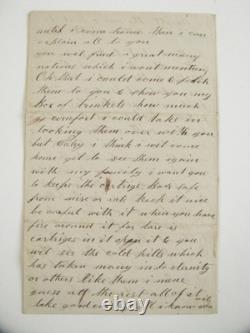 until i come home then i can
explain all to you
you will find a great many
notions which i wont mention
Oh that i could come & fetch
them to you & show you my
Box of trinkets how much
comfort i could take in
looking them over with you
but Caty i think i will come
home yet to see them again
with my family i want you
to keep the cartrige Box safe
from mise or rats keep it nice
be careful with it when you have
fire around it for there is
cartriges in it open it & you
will see the cold pills which
has taken many into eternity
or others like them i more
guess all the rest all of it
take good i know